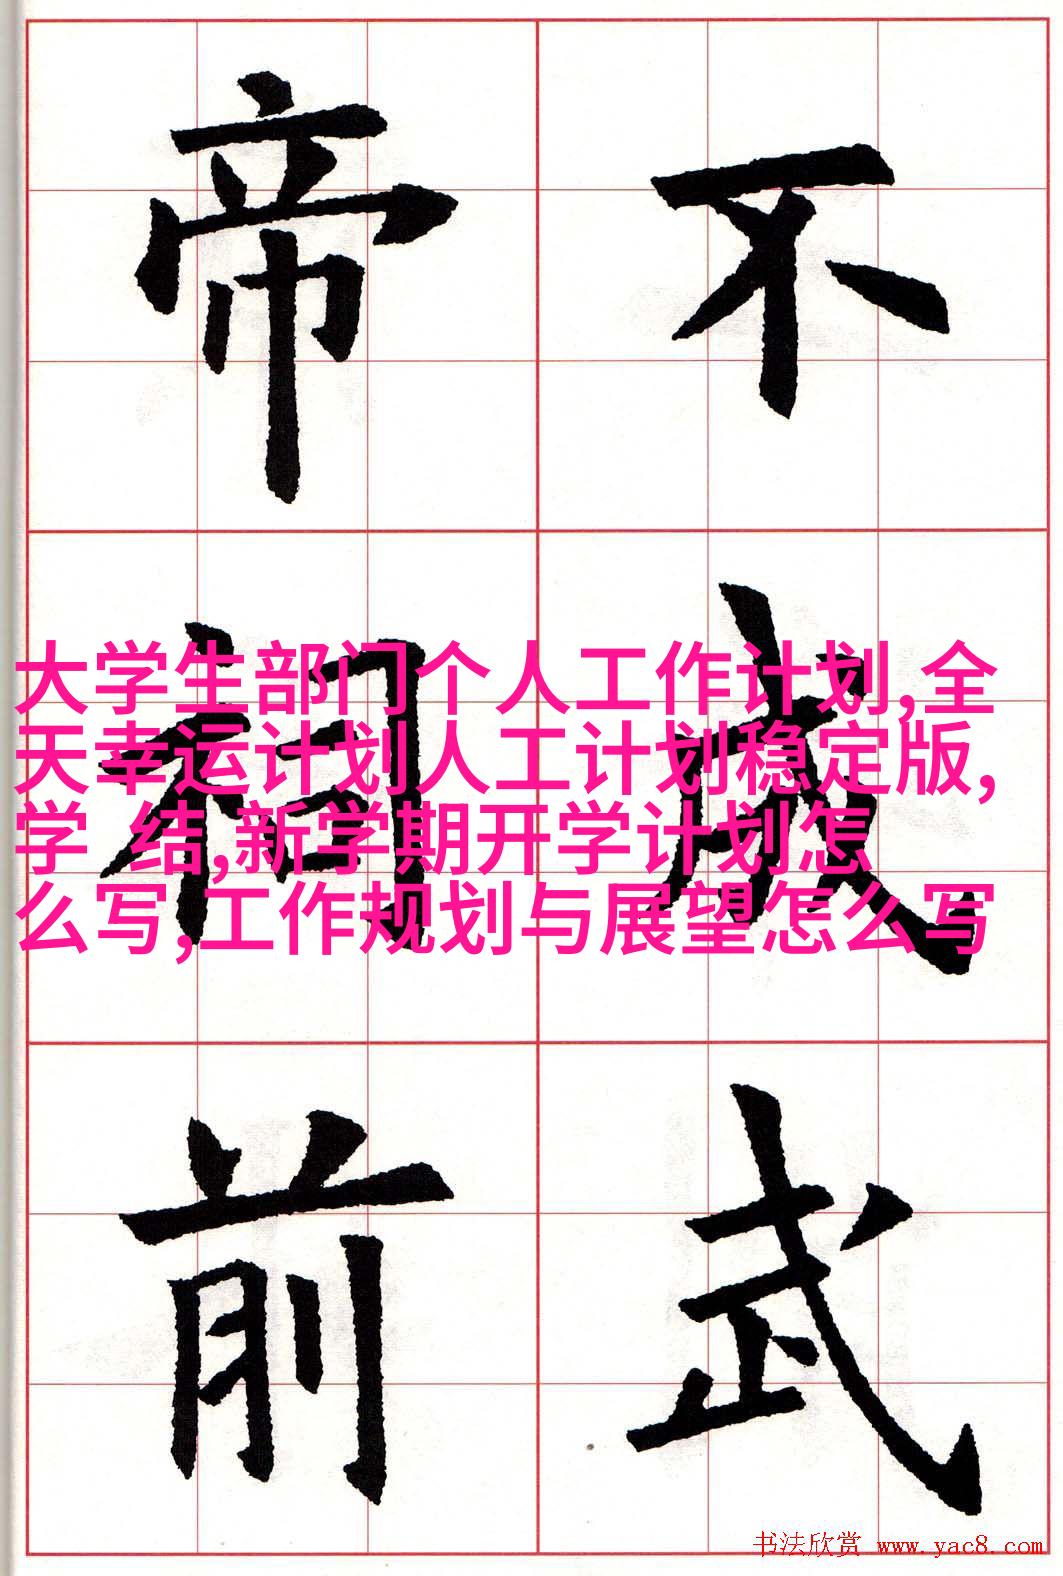 帝 不
祠 成
前 武
大学生部门个人工作计划,全
天幸运计划人工计划稳定版,
学 结,新学期开学计划怎
么写,工作规划与展望怎么写
书法欣赏 www.yac8.com